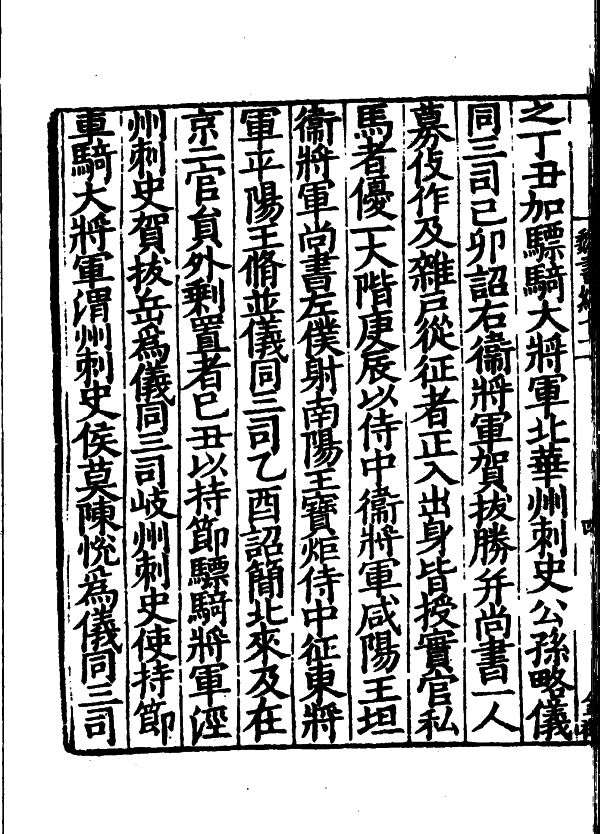 之丁丑加驃騎大將軍北華州刺史公孫略儀
同三司己卯詔右衞將軍賀拔勝幷尚書一人
募伎作及雜戶從征者正入出身皆授實官私
馬者優一大階庚辰以侍中衞將軍咸陽王坦
衞將軍尚書左僕射南陽王寶炬侍中征東將
軍平陽王脩並儀同三司乙酉詔簡北來及在
京二官員外剩置者己丑以持節驃騎將軍涇
州刺史賀拔岳爲儀同三司岐州刺史使持節
車騎大將軍渭州刺史侯莫陳悅爲儀同三司